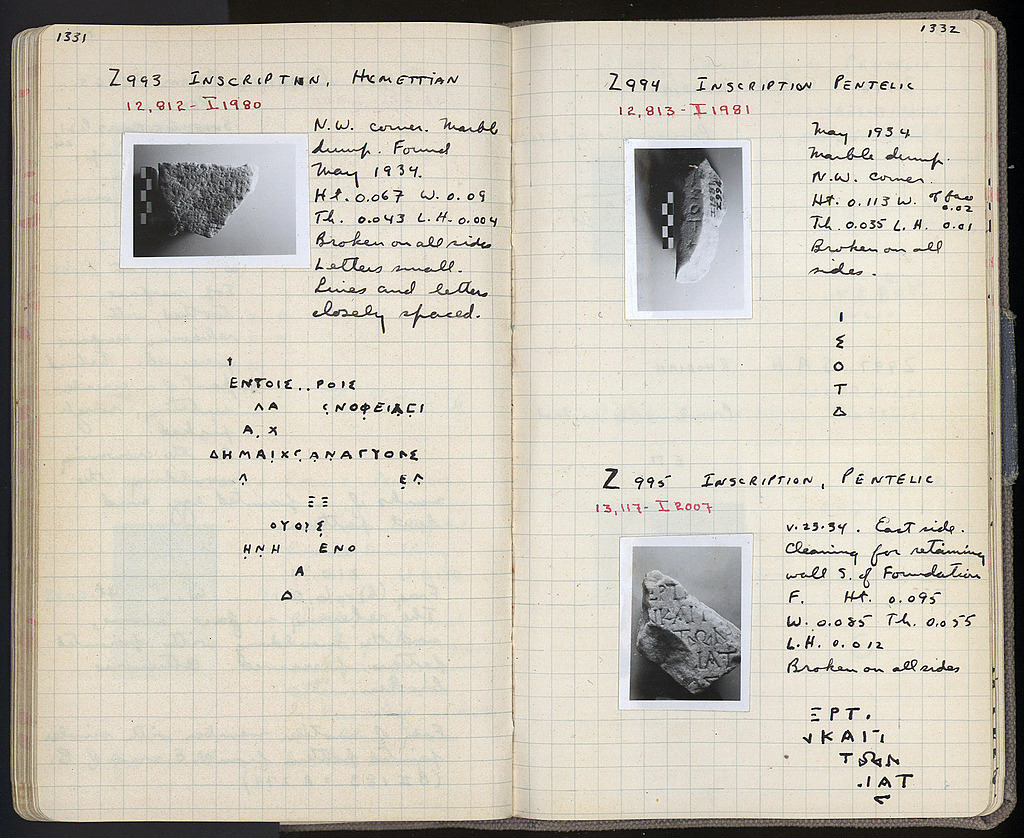 1331
Z993 INSCRIPTION, HYMETTIAN
12,812 - I 1980
N.W. corner. Marble
dump. Found
May 1934.
Ht. 0.067 W. 0.09
Th. 0.043 L.H. 0.004
Broken on all sides
Letters small.
Lines and letters
closely spaced.
ΕΝΤΟΙΣ..ΡΟΙΣ
ΛΑ
Α. Χ
ΞΞ
ΗΝΗ ΕΝΟ
Α
Δ
1332
Z994 INSCRIPTION PENTELIC
12,813 - I 1981
May 1934
Marble dump.
N.W. corner.
Ht. 0.113 W. of face 0.02
Th. 0.035 L.H. 0.01
Broken on all
sides.
Ι
Σ
Ο
Τ
Δ
Z 995 INSCRIPTION, PENTELIC
13,117 - I 2007
V.23.34. East side.
Cleaning for retaining
wall S. of Foundation
F. Ht. 0.095
W. 0.085 Th. 0.055
L.H. 0.012
Broken on all sides
ΞΡΤ.
ΚΑΙΠ
ΤΩΝ
.ΙΑΤ